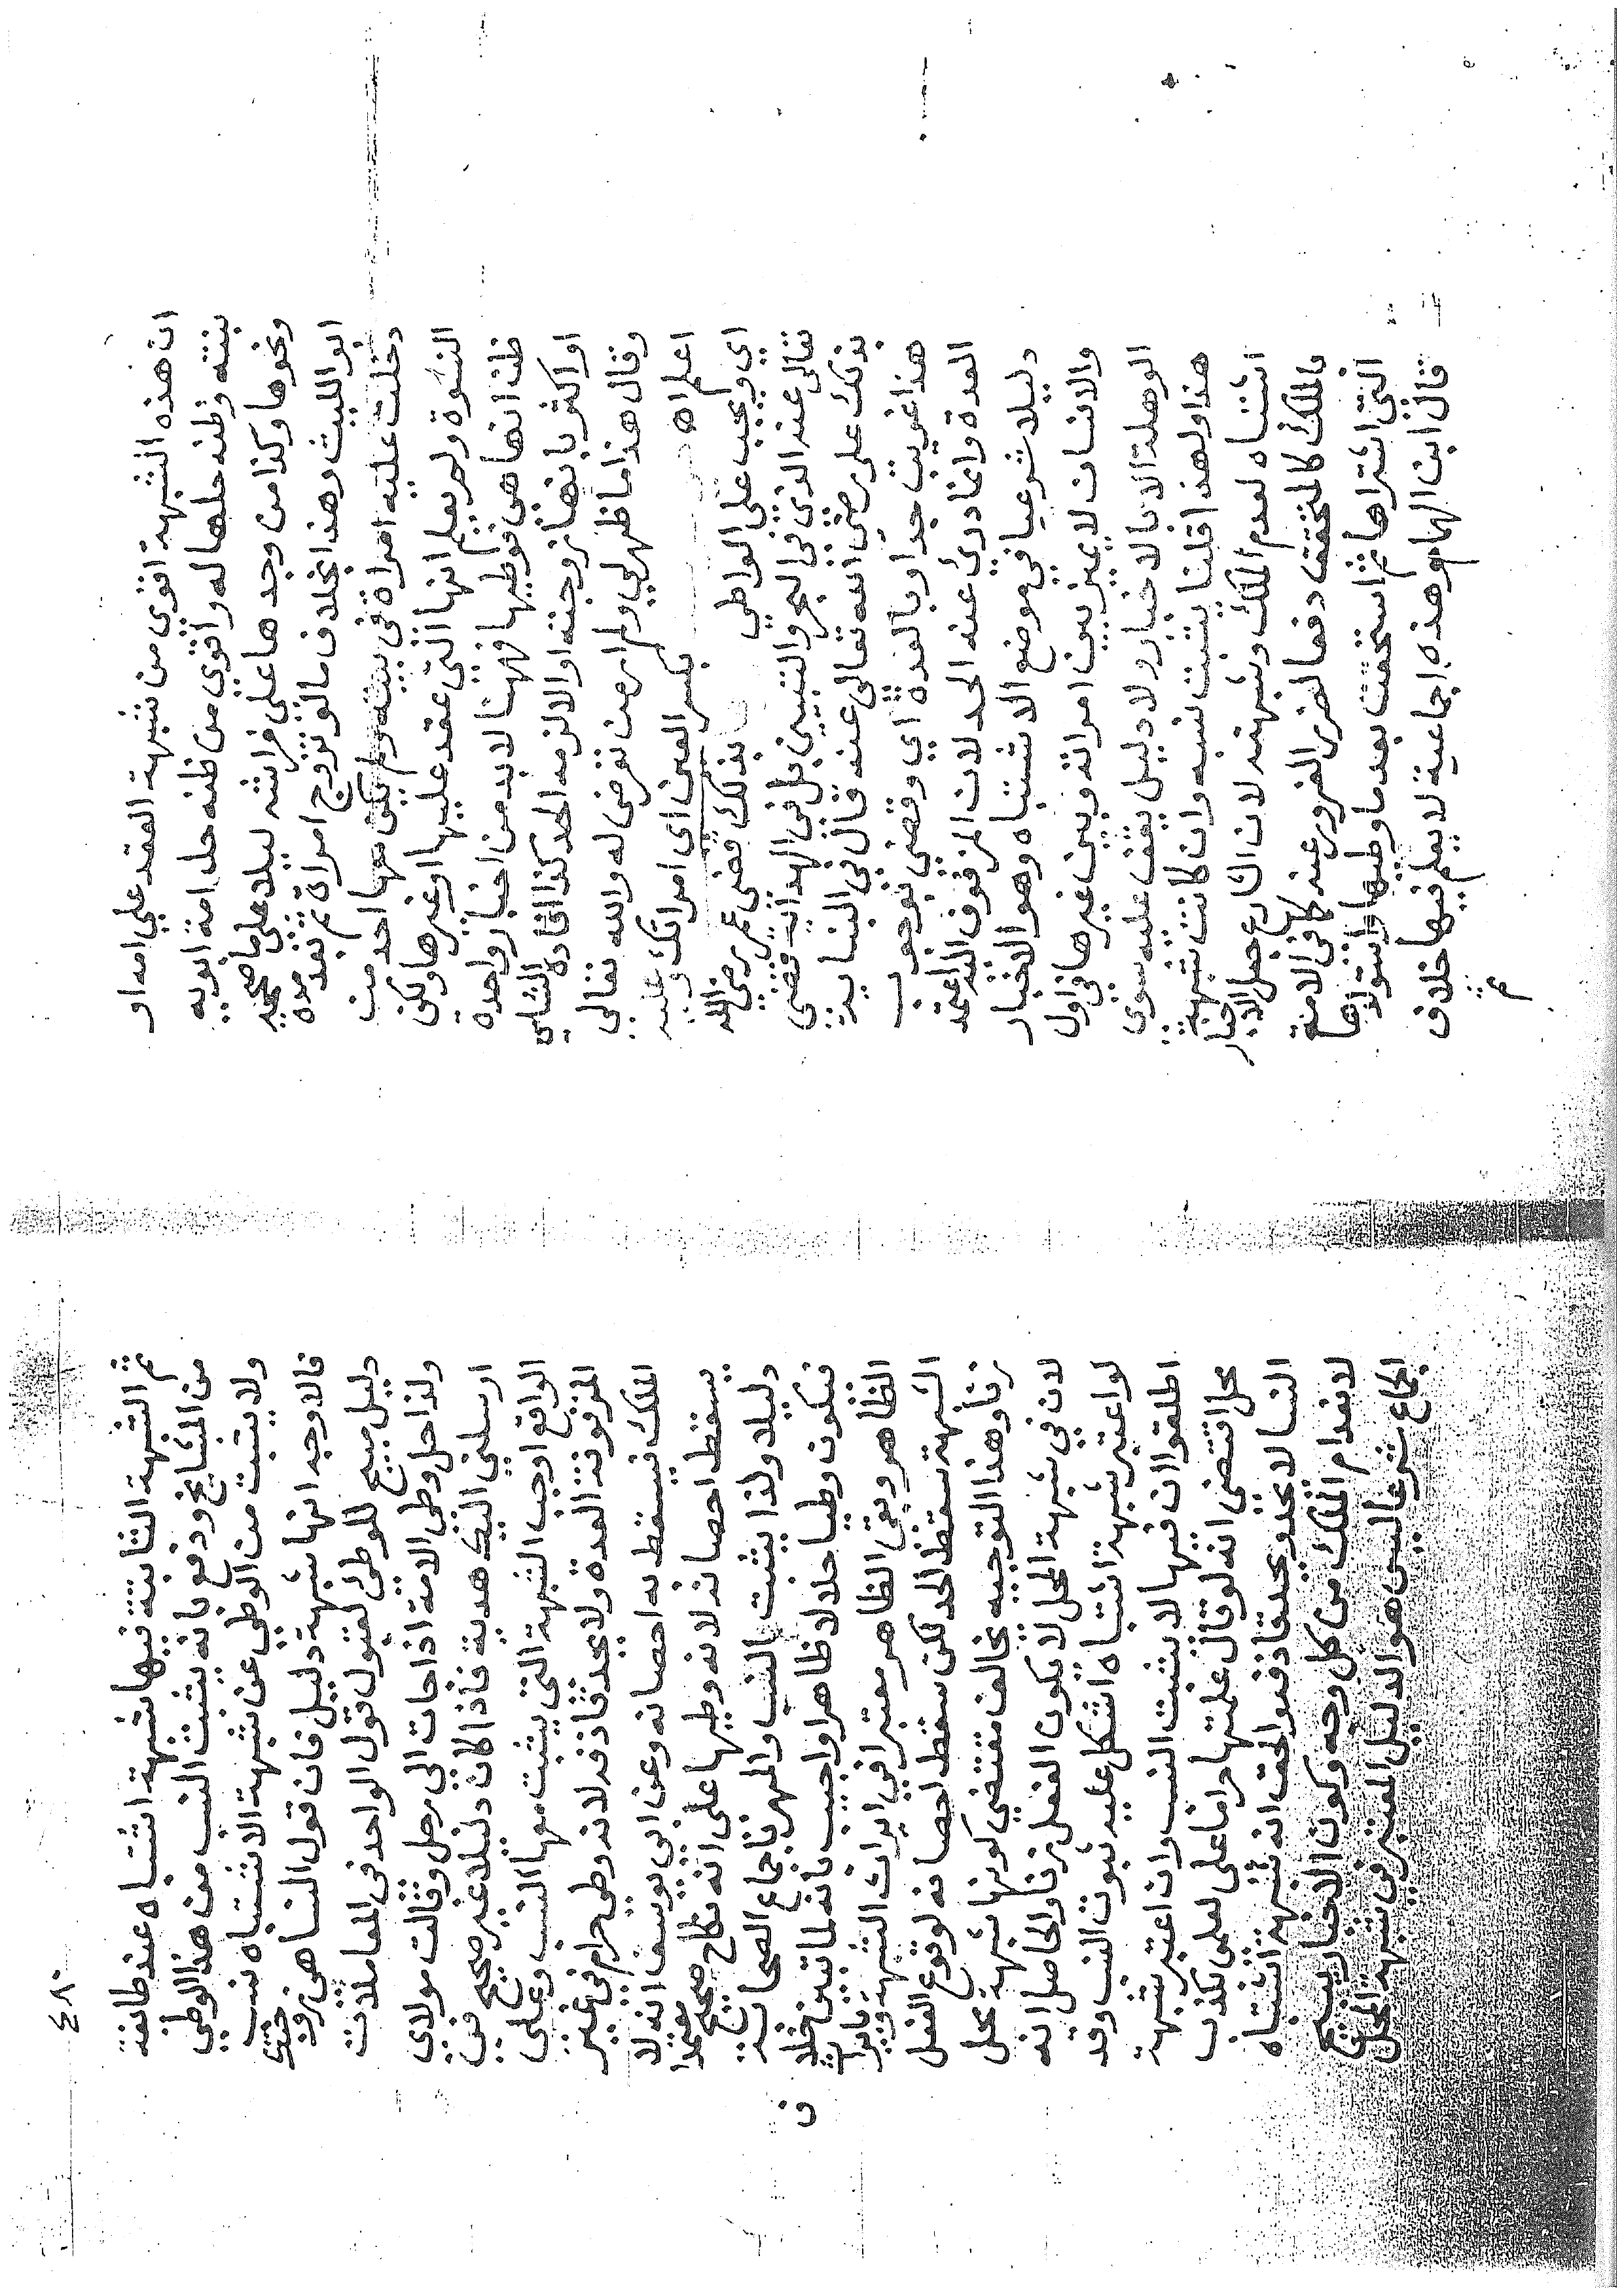 ان هذه الشبهة اقوى من شبهة العقد على امه او
بنته وظنه حلها له واقوى من ظنه حل امة ابويه
ونحوها وكذا من وجدها على فراشه ليلا على ما صححه
ابو الليث وهذا بخلاف ما لو تزوج امراة ثم بعد مدة
دخلت عليه امراة في بيته ولم يكن معها احد من
النسوة ولم يعلم انها التي عقد عليها او غيرها ولكن
ظن انها هي فوطيها فهنا لابد من اخبار واحدة
او اكثر بانها زوجته او الا لزمه الحد كذا افاده الشامي
وقال هذا ما ظهر لي ولم ار من تعرض له والله تعالى
اعلم اه بكسر العين اى امراتك وعليه
اي ويجب على الواطي بذلك قضى عمر رضي الله
تعالى عنه الذي في البحر والتبيين بل في الهداية قضى
بذلك على رضى الله تعالى عنه قال في العناية
هذا غريب جدا وبالعدة اي وقضى بوجوب
العدة وانما درئ عنه الحد لان المزفوف اليه اعتمد
دليلا شرعيا في موضع الاشتباه وهو الاخبار
والانسان لا يميز بين امراته وبين غيرها في اول
الوهلة الا بالاخبار ولا دليل يقف عليه سوى
هذا ولهذا قلنا يثبت نسبه وان كانت شبهة
اشتباه لعدم الملك وشبهته لان الشارع جعل الاخبار
بالملك كالمتحقق دفعا لضرر الغرور عنه كما في الامة
التي اشتراها ثم استحقت بعد ما وطيها واستولدها
قال ابن الهمام وهذه اجماعية لا يعلم فيها خلاف
ثم
٤٨٠
ثم الشبهة الثابتة فيها شبهة اشتباه عند طائفة
من المشايخ ودفع بانه يثبت النسب من هذا الوطي
ولا يثبت من الوطي عن شبهة الاشتباه نسب
فالاوجه انها شبهة دليل فان قول النسا هي زوجتك
دليل مبيح للوطى لقبول قول الواحد في المعاملات
ولذا حل وطى الامة اذا جات الى رجل وقالت مولاي
ارسلني اليك هدية فاذا كان دليلا غير صحيح في
الواقع اوجب الشبهة التي يثبت معها النسب وعلى
المزفوفة العدة ولا يحد قاذفه لانه وطى حرام في غير
الملك فيسقط به احصانه وعن ابي يوسف انه لا
يسقط احصانه لانه وطيها على انه نكاح صحيح معتمدا
دليلا ولذا يثبت النسب والمهر باجماع الصحابة
فيكون وطيا حلالا ظاهرا واجيب بانه لما تبين خلاف
الظاهر وبقى الظاهر معتبرا في ايراث الشبهة وباثر
الشبهة سقط الحد لكن سقط احصانه لوقوع الفعل
زنا وهذا التوجيه يخالف مقتضى كونها شبهة محل
لان في شبهة المحل لا يكون الفعل زنا والحاصل انه
لو اعتبر شبهة اشتباه اشكل عليه ثبوت النسب وقد
اطلقوا ان فيها لا يثبت النسب وان اعتبر شبهة
محل اقتضى انه لو قال علمتها حراما على لعلمى بكذب
النسا لا يحد ويحد قاذفه والحق انه شبهة اشتباه
لانعدام الملك من كل وجه وكون الاخبار يبيح
الجماع شرعا ليس هو الدليل المعتبر في شبهة المحل